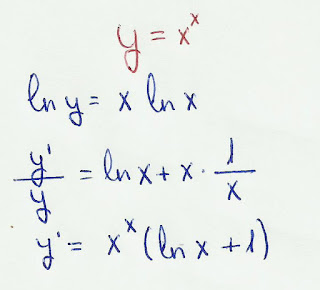 y = xˣ
ln y = x ln x
y'/y = ln x + x · 1/x
y' = xˣ (ln x + 1)